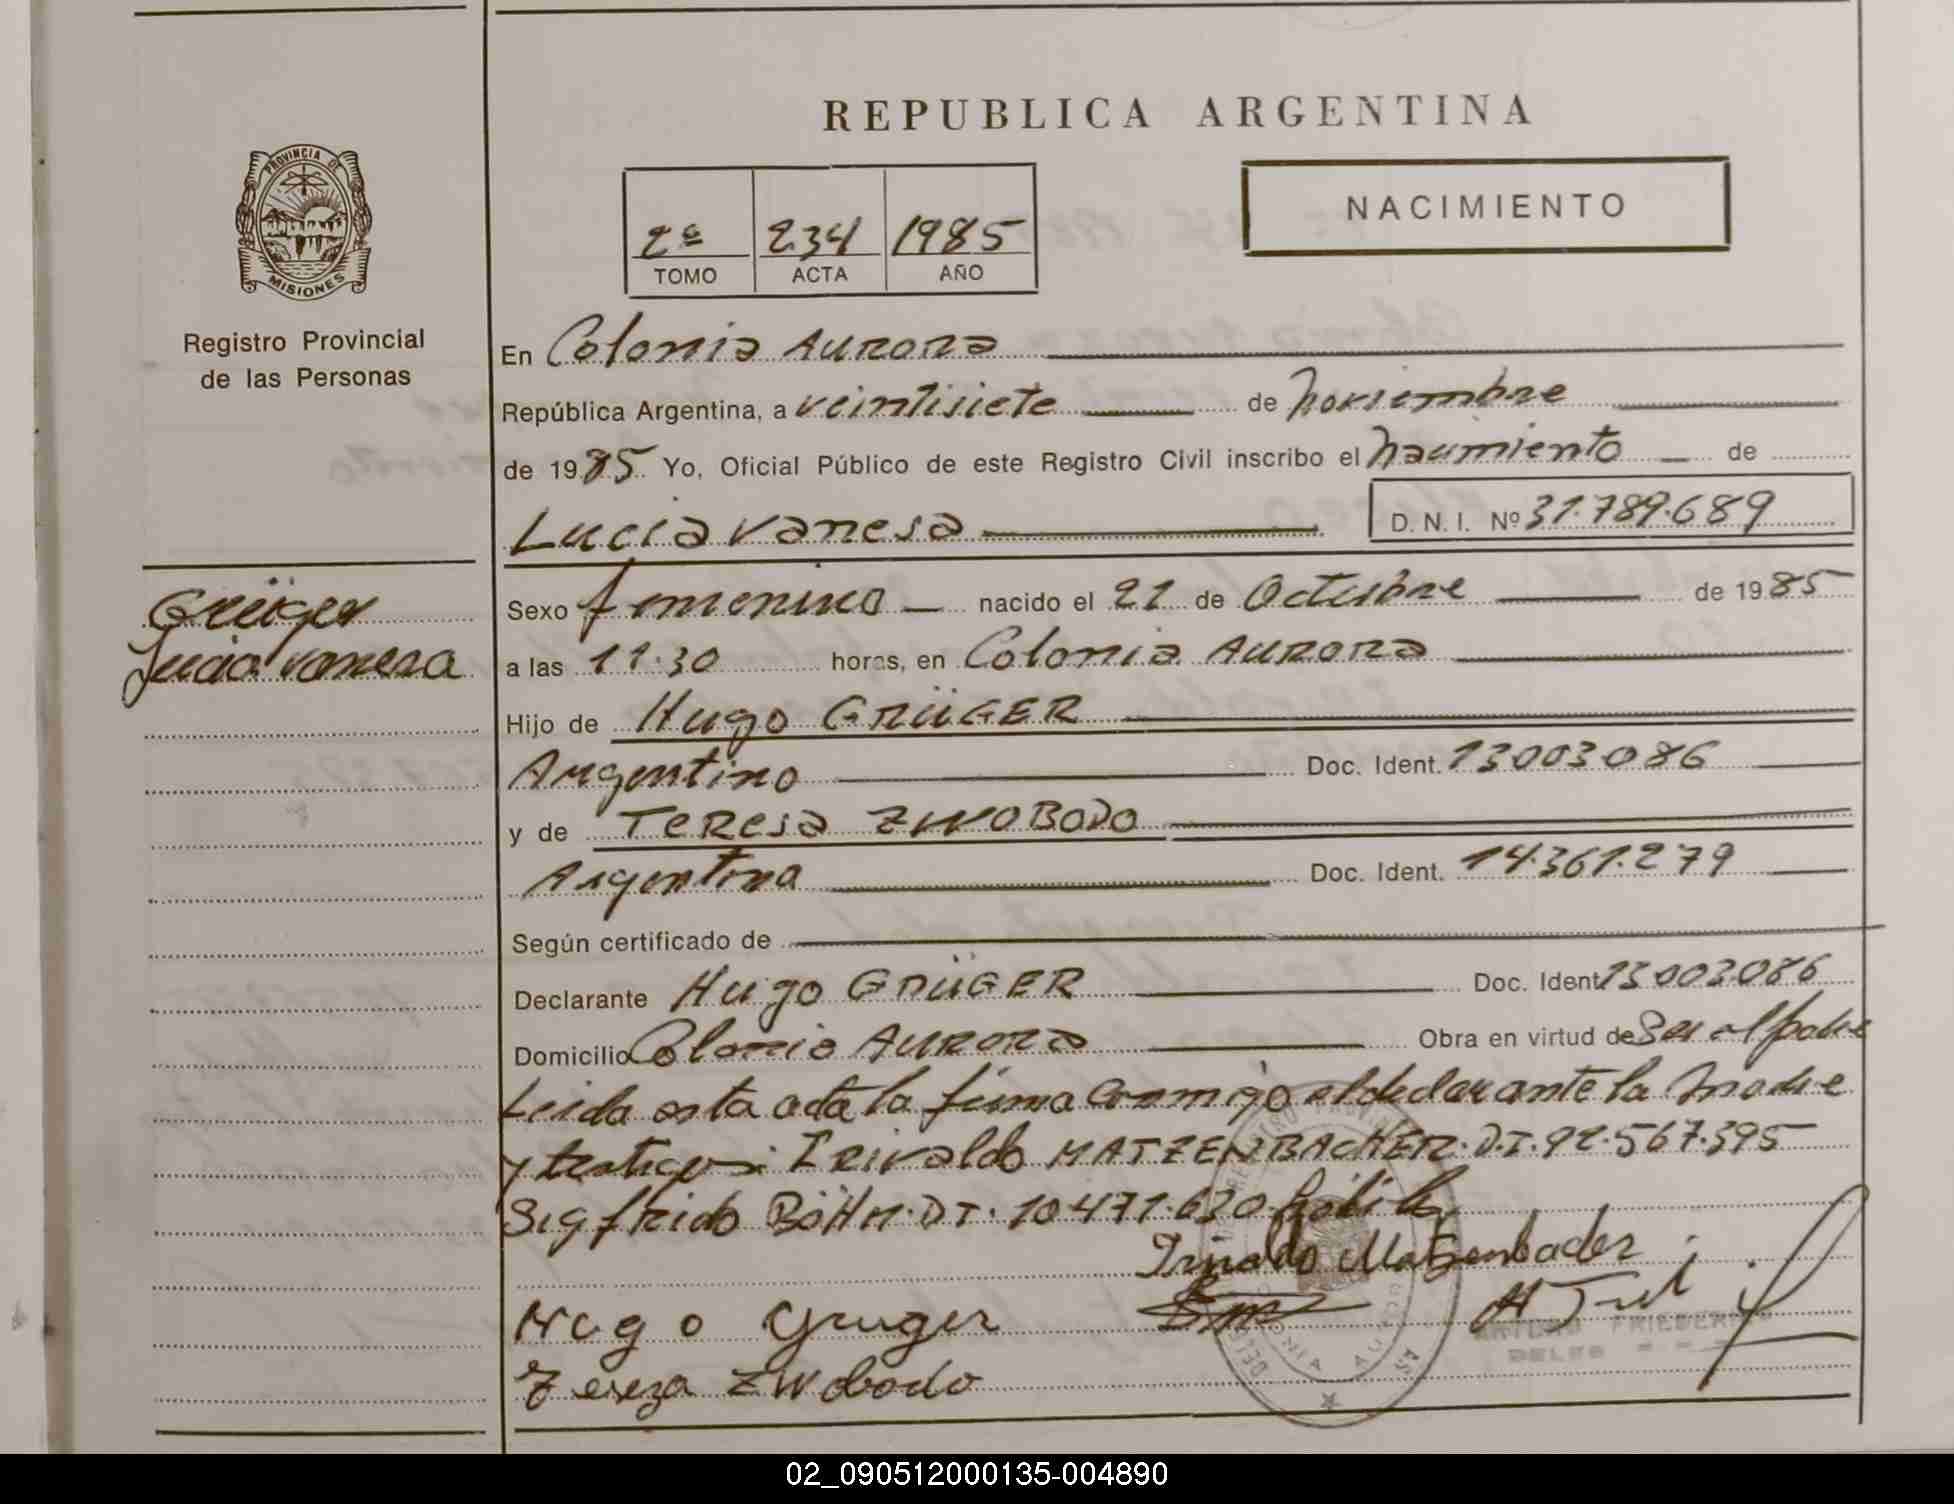 REPUBLICA ARGENTINA
PROVINCIA DE
MISIONES
Registro Provincial
de las Personas
2º 234 1985
TOMO ACTA AÑO
NACIMIENTO
En Colonia Aurora
República Argentina, a veintisiete de noviembre
de 1985. Yo, Oficial Público de este Registro Civil inscribo el nacimiento de
Lucia Vanesa D. N. I. Nº 31.789.689
Grüger
Lucia Vanesa
Sexo femenino nacido el 21 de Octubre de 1985
a las 11.30 horas, en Colonia Aurora
Hijo de Hugo GRÜGER
Argentino Doc. Ident. 13003086
y de Teresa ZWOBODO
Argentina Doc. Ident. 14.361.279
Según certificado de
Declarante Hugo GRÜGER Doc. Ident. 13003086
Domicilio Colonia Aurora Obra en virtud de Ser el padre
Leida esta acta la firma conmigo el declarante la madre
y testigos: Irivaldo MATZENBACHER. D.I. 92.567.395
Sigfrido BÖHM. DI. 10.471.630
Irivaldo Matzenbacher
Hugo Gruger
Tereza Zwobodo
ARTURO FRIEDERICH
02_090512000135-004890